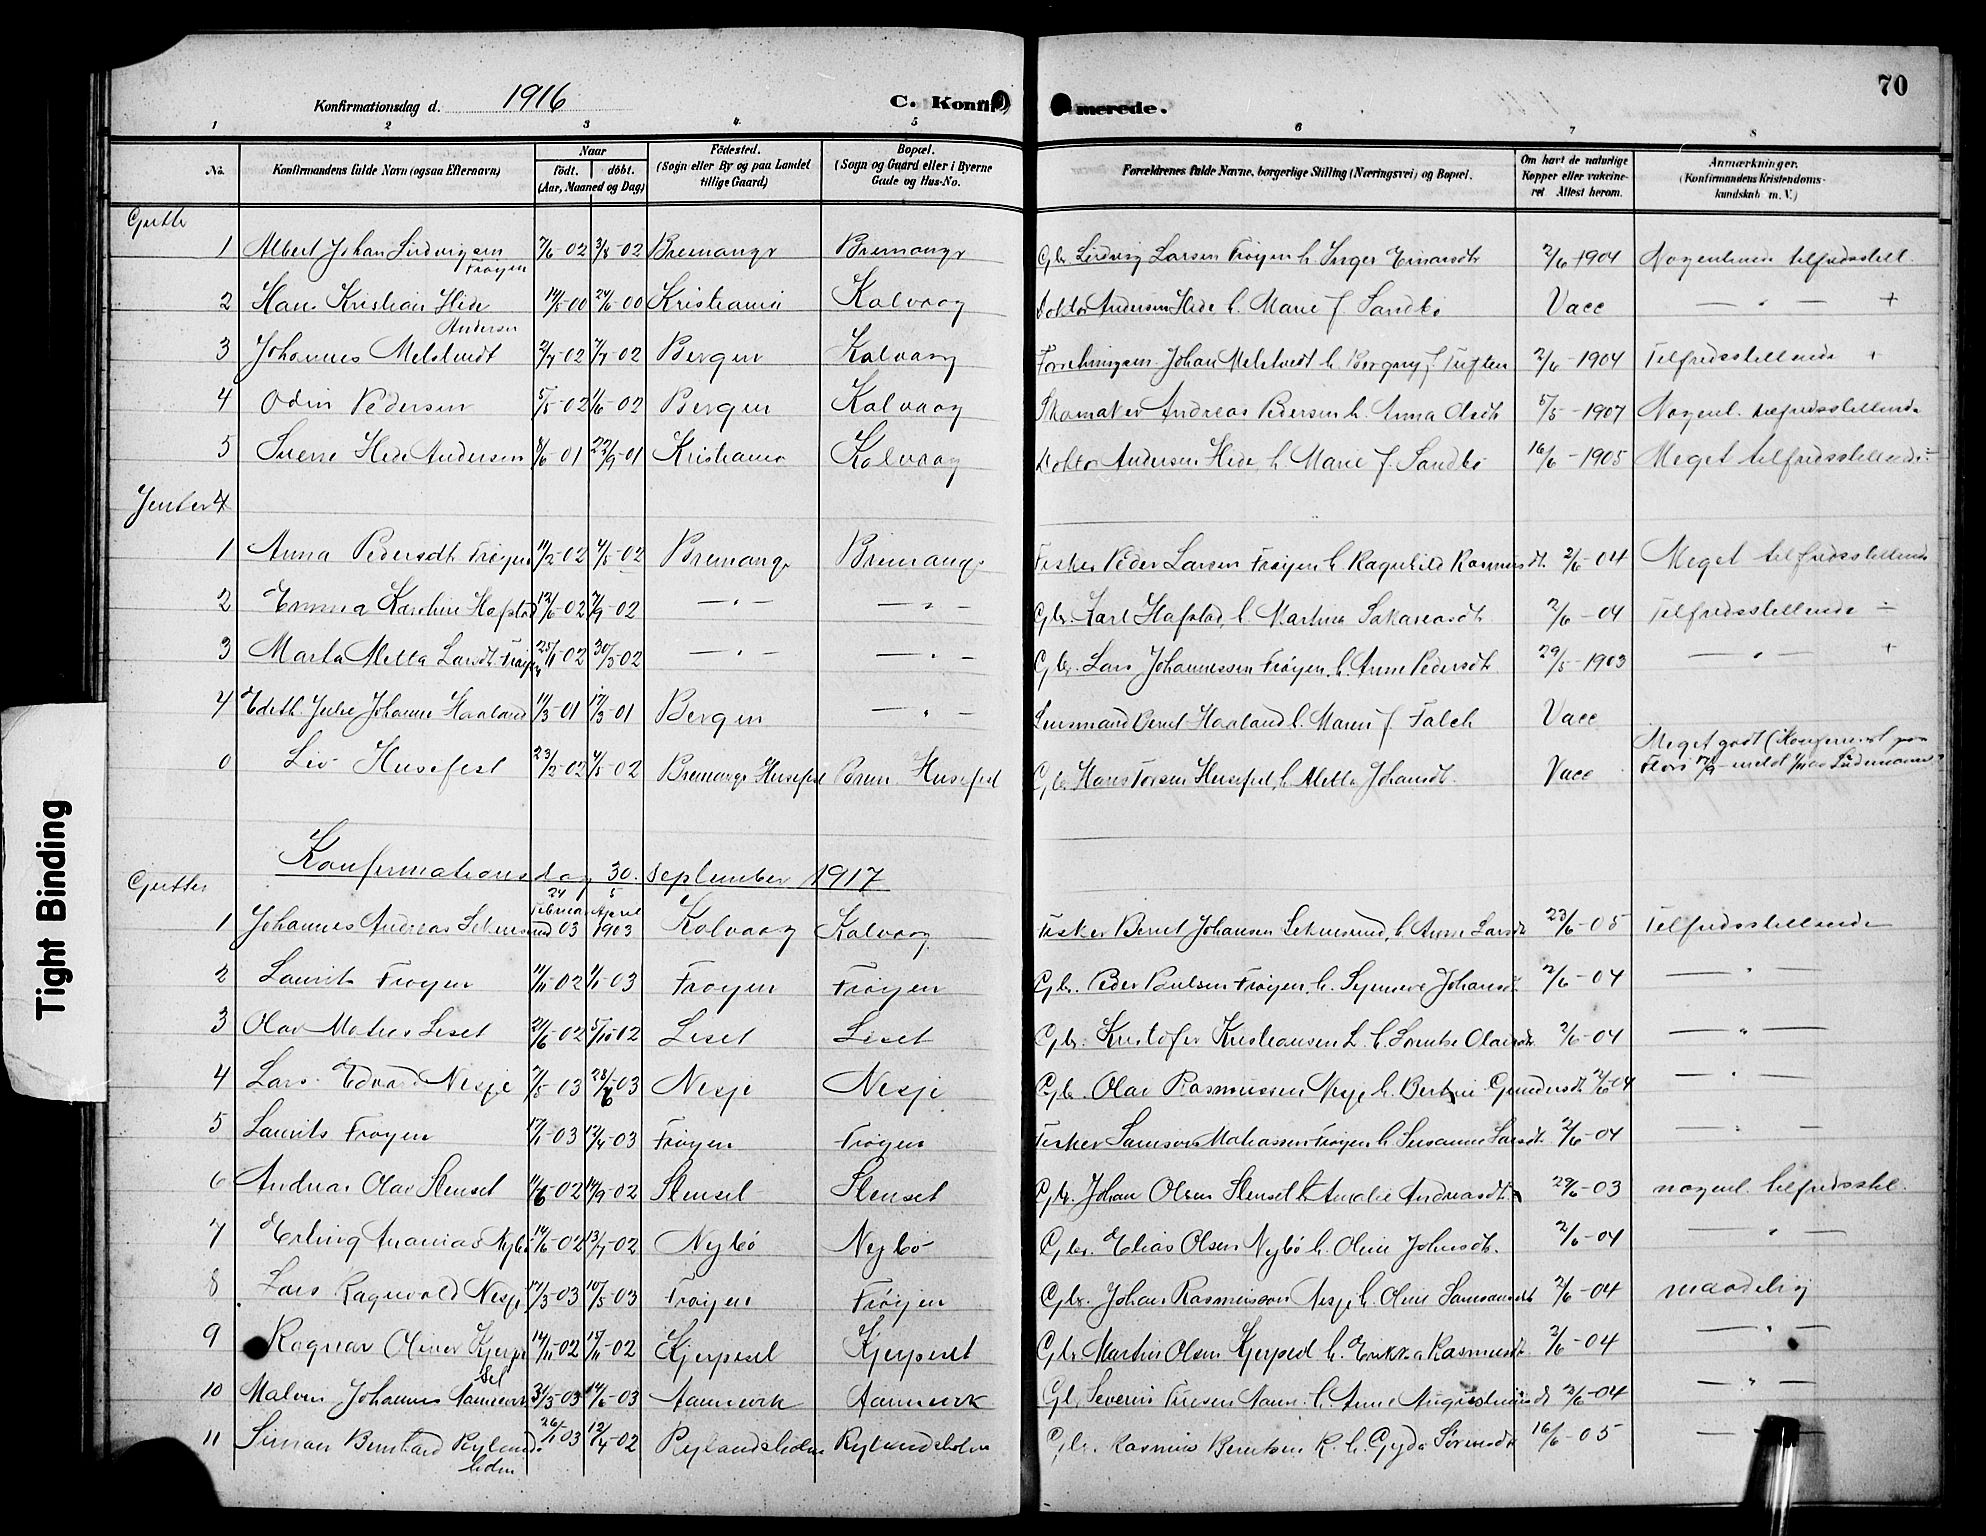 70
Konfirmationsdag d. 1916 C. Konfir merede.
1 2 3 4 5 6 7 8
No. Konfirmandens fulde Navn (ogsaa Efternavn) Naar født. døbt. (Aar, Maaned og Dag) Fødested. (Sogn eller By og paa Landet tillige Gaard) Bopæl. (Sogn og Gaard eller i Byerne Gade og Hus-No. Forældrenes fulde Navne, borgerlige Stilling (Næringsvei) og Bopæl. Om havt de naturlige Kopper eller vakcineret Attest herom. Anmærkninger. (Konfirmandens Kristendomskundskab m. V.)
Gutter
1 Albert Johan Ludvigsen Frøyen 7/6-02 3/8-02 Bremanger Bremanger Gbr. Ludvig Larsen Frøyen h. Inger Einarsdt 2/6-1904 Nogenlunde tilfredsstill.
2 Hans Kristian Hide Andersen 14/5-00 24/6-00 Kristiania Kalvaag Doktor Andersen Hide h. Marie f. Sandbo Vacc — " — +
3 Johannes Melstvedt 2/7-02 7/7-02 Bergen Kalvaag Johan Melstvedt h. Borgny f. Tuften 2/6-1904 Tilfredsstillende +
4 Odin Pedersen 5/5-02 1/6-02 Bergen Kalvaag Skomaker Andreas Pedersen h. Anna Olsdt 5/5-1907 Nogenl. tilfredsstillende
5 Sverre Hide Andersen 8/6-01 22/9-01 Kristiania Kalvaag Doktor Andersen Hide h. Marie f. Sandbo 16/6-1905 Meget tilfredsstillende
Jenter
1 Anna Pedersdt. Frøyen 11/2-02 4/5-02 Bremang. Bremang. Fisker Peder Larsen Frøyen h. Ragnhild Rasmusdt. 2/6-04 Meget tilfredsstillende
2 Emma Karoline Hafstad 12/6-02 7/9-02 — " — — " — Gbr. Karl Hafstad, h. Martina Sakariasdt. 2/6-04 Tilfredsstillende
3 Marta Metta Larsdt. Frøyen 25/1-02 30/3-02 — " — — " — Gbr. Lars Johannessen Frøyen h. Anne Pedersdt. 29/5-1903 — " — +
4 Edith Julie Johanne Haaland 11/3-01 17/3-01 Bergen — " — Lensmand Bernt Haaland h. Maren f. Falch Vacc
0 Liv Husefest 23/2-02 4/5-02 Bremang. Husefest Brem. Husefest Gbr. Hans Torsen Husefest, h. Metta Johansdt. Vacc Meget godt (Konfirmert paa Florø 17/9
Konfirmationsdag 30. september 1917
Gutter
1 Johannes Andreas Seknesund 24 Februar 03 5 April 1903 Kalvaag Kalvaag Fisker Bernt Johansen Seknesund, h. Anne Larsdt 23/6-05 Tilfredsstillende
2 Laurits Frøyen 4/11-02 4/1-03 Frøyen Frøyen Gbr. Peder Paulsen Frøyen, h. Synneve Johansdt. 2/6-04 — " —
3 Olav Matias Liset 21/6-02 5/10-02 Liset Liset Gbr. Kristofer Kristiansen L. h. Lorentse Olaisdt. 2/6-04 — " —
4 Lars Edvard Nesje 7/5-03 28/6-03 Nesje Nesje Gbr. Olav Rasmussen Nesje h. Bertine Gundersdt. 2/6-04 — " —
5 Laurits Frøyen 17/1-03 12/4-03 Frøyen Frøyen Fisker Samson Matiassen Frøyen h. Susanne Larsdt. 2/6-04 — " —
6 Andreas Olav Stenset 14/6-02 14/9-02 Stenset Stenset Gbr. Johan Olsen Stenset h. Amalie Andreasdt. 29/6-03 nogenl. tilfredsstil.
7 Erling Ananias Nybø 14/6-02 13/7-02 Nybø Nybø Gbr. Elias Olsen Nybø h. Oline Johnsdt. 2/6-04 — " —
8 Lars Ragnvald Nesje 17/3-03 10/5-03 Frøyen Frøyen Gbr. Johan Rasmussen Nesje h. Oline Samsonsdt 2/6-04 maadelig
9 Ragnar Oliver Kjerpeset 14/11-02 15/11-02 Kjerpeset Kjerpeset Gbr. Martin Olsen Kjerpeset h. Erikka Rasmusdt. 2/6-04 — " —
10 Malvin Johannes Aannevik 31/3-03 14/6-03 Aannevik Aannevik Gb. Severin Iversen Aann. h. Anne Augustinusdt 2/6-04 — " —
11 Simon Berntard Rylandsholm 26/1-03 12/4-02 Rylandsholm Rylandsholm Gbr. Rasmus Berntsen R. h. Gyda Sørensdt 16/6-05 —
Tight Binding